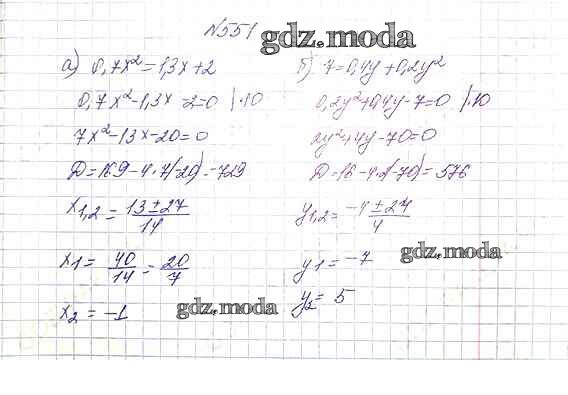 №551
gdz.moda
а) 0,7x² = 1,3x + 2
0,7x² - 1,3x - 2 = 0 | ·10
7x² - 13x - 20 = 0
D = 169 - 4·7(-20) = 729
x1,2 = (13 ± 27)/14
x1 = 40/14 = 20/7
x2 = -1
gdz.moda
б) 7 = 0,4y + 0,2y²
0,2y² + 0,4y - 7 = 0 | ·10
2y² + 4y - 70 = 0
D = 16 - 4·2(-70) = 576
y1,2 = (-4 ± 24)/4
gdz.moda
y1 = -7
y2 = 5